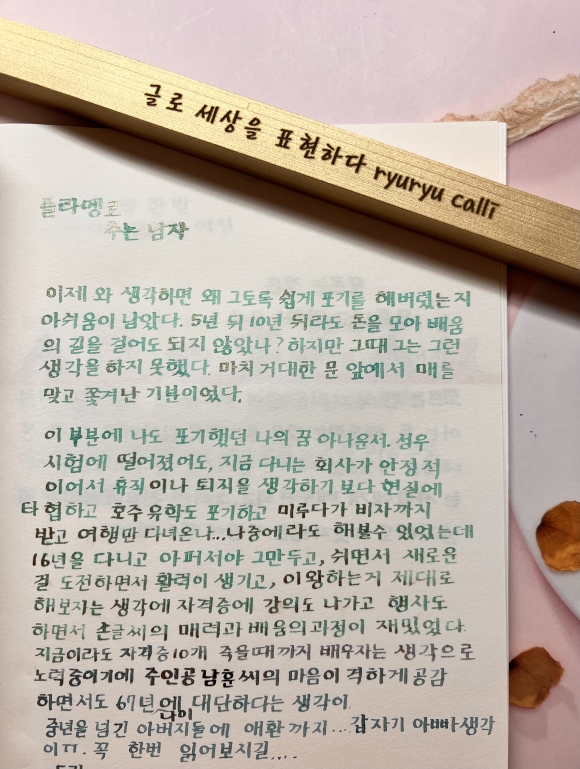 글로 세상을 표현하다 ryuryu calli
플라멩코
추는 남자
이제 와 생각하면 왜 그토록 쉽게 포기를 해버렸는지
아쉬움이 남았다. 5년 뒤 10년 뒤라도 돈을 모아 배움
의 길을 걸어도 되지 않았나? 하지만 그때 그는 그런
생각을 하지 못했다. 마치 거대한 문 앞에서 매를
맞고 쫓겨난 기분이었다.
이 부분에 나도 포기했던 나의 꿈 아나운서. 성우
시험에 떨어졌어도, 지금 다니는 회사가 안정적
이어서 휴직이나 퇴직을 생각하기 보다 현실에
타협하고 호주 유학도 포기하고 미루다가 비자까지
받고 여행만 다녀온나...나중에라도 해볼수 있었는데
16년을 다니고 아퍼서야 그만두고, 쉬면서 새로운
걸 도전하면서 활력이 생기고, 이왕하는거 제대로
해보자는 생각에 자격증에 강의도 나가고 행사도
하면서 손글씨의 매력과 배움의과정이 재밌었다.
지금이라도 자격증10개 죽을때까지 배우자는 생각으로
노력중이기에 주인공 남훈씨의 마음이 격하게 공감
하면서도 67년 대단하다는 생각이
중년을 넘긴 아버지들에 애환 까지... 갑자기 아빠생각
이ㅠ. 꼭 한번 읽어보시길....